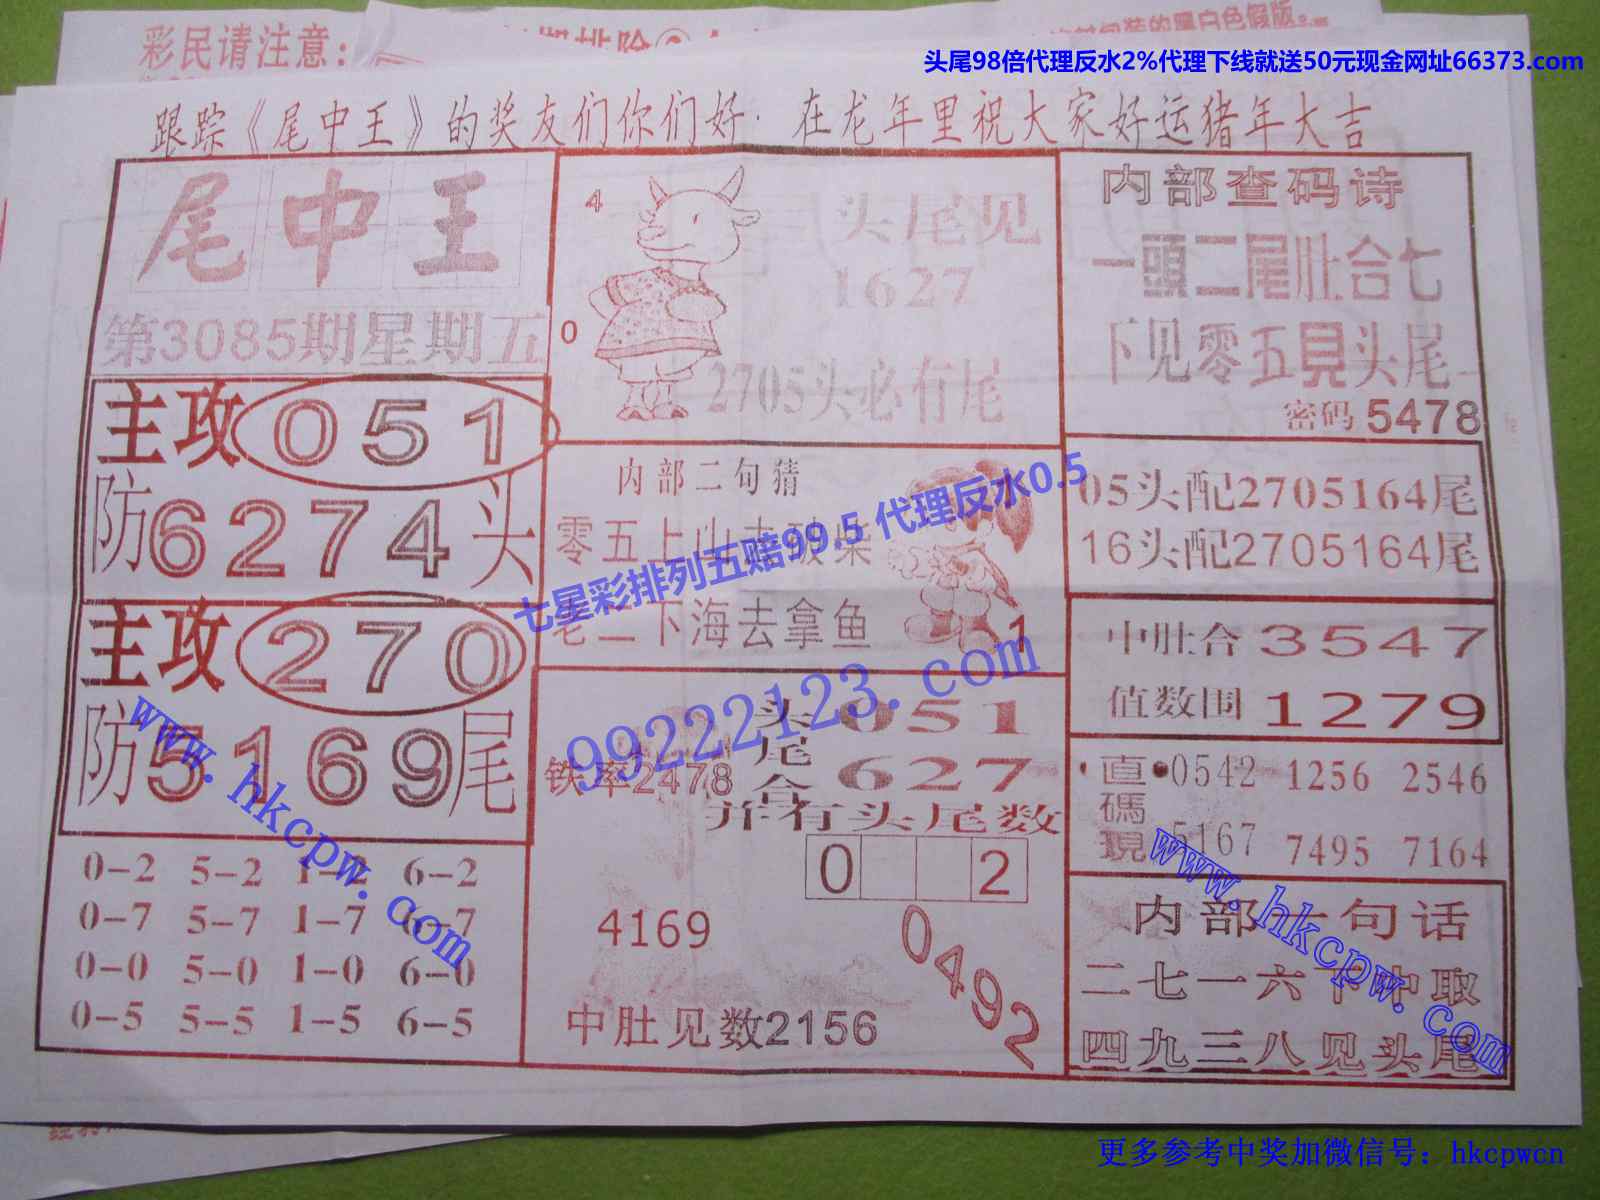 彩民请注意：
的黑白色假版。
头尾98倍代理反水2%代理下线就送50元现金网址66373.com
跟踪《尾中王》的奖友们你们好·在龙年里祝大家好运猪年大吉
尾中王
第3085期星期五
主攻051
防6274头
主攻270
防5169尾
0-2 5-2 1-2 6-2
0-7 5-7 1-7 6-7
0-0 5-0 1-0 6-0
0-5 5-5 1-5 6-5
4
0
头尾见
1627
2705头必有尾
内部二句猜
零五上山去破柴
老二下海去拿鱼
1
七星彩排列五赔99.5 代理反水0.5
99222123.com
头尾合
051
627
铁率2478
并有头尾数
0 2
4169
0492
中肚见数2156
内部查码诗
一頭二尾肚合七
下见零五見头尾
密码5478
05头配2705164尾
16头配2705164尾
中肚合3547
值数围1279
直碼現
0542 1256 2546
5167 7495 7164
内部一句话
二七一六下中取
四九三八见头尾
www.hkcpw.com
www.hkcpw.com
更多参考中奖加微信号：hkcpwcn